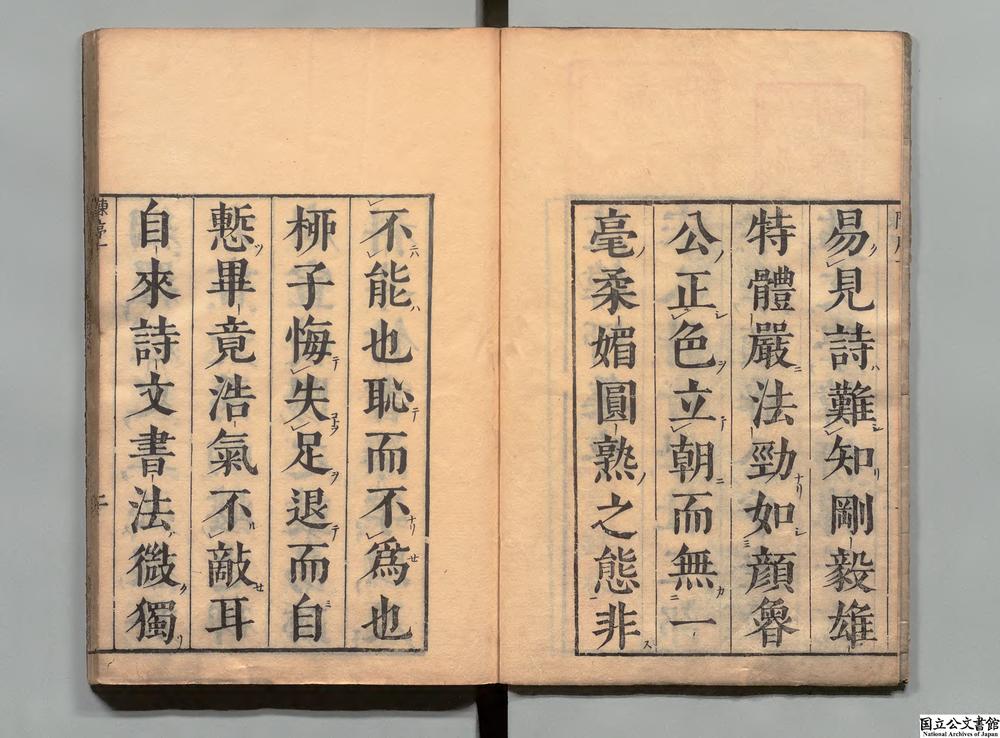 易見詩難知剛毅雄
特體嚴法勁如顔魯
公正色立朝而無一
毫柔媚圓熟之態非
不能也恥而不爲也
栁子悔失足退而自
慙畢竟浩氣不敵耳
自來詩文書法微獨
国立公文書館
National Archives of Japan